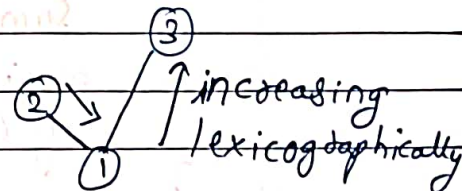 3
2
increasing
lexicographically
1